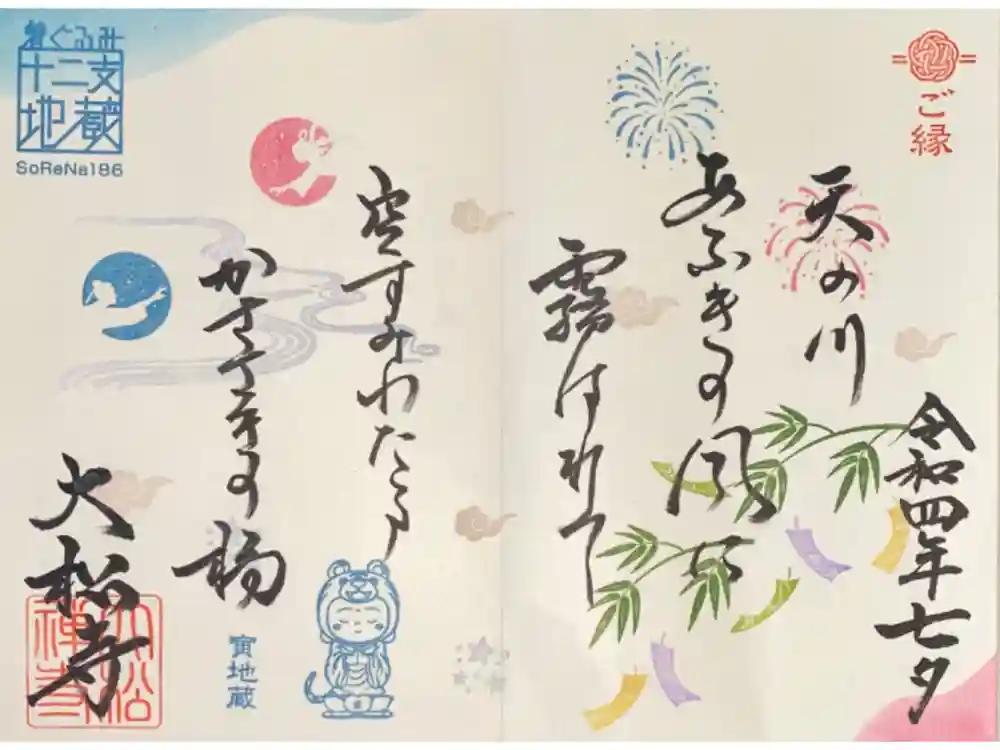 ご縁
令和四年七夕
天の川
あふきの風に
霧はれて
空すみわたる
かささきの橋
大松寺
寅地蔵
着ぐるみ
十二支
地蔵
SoReNa186